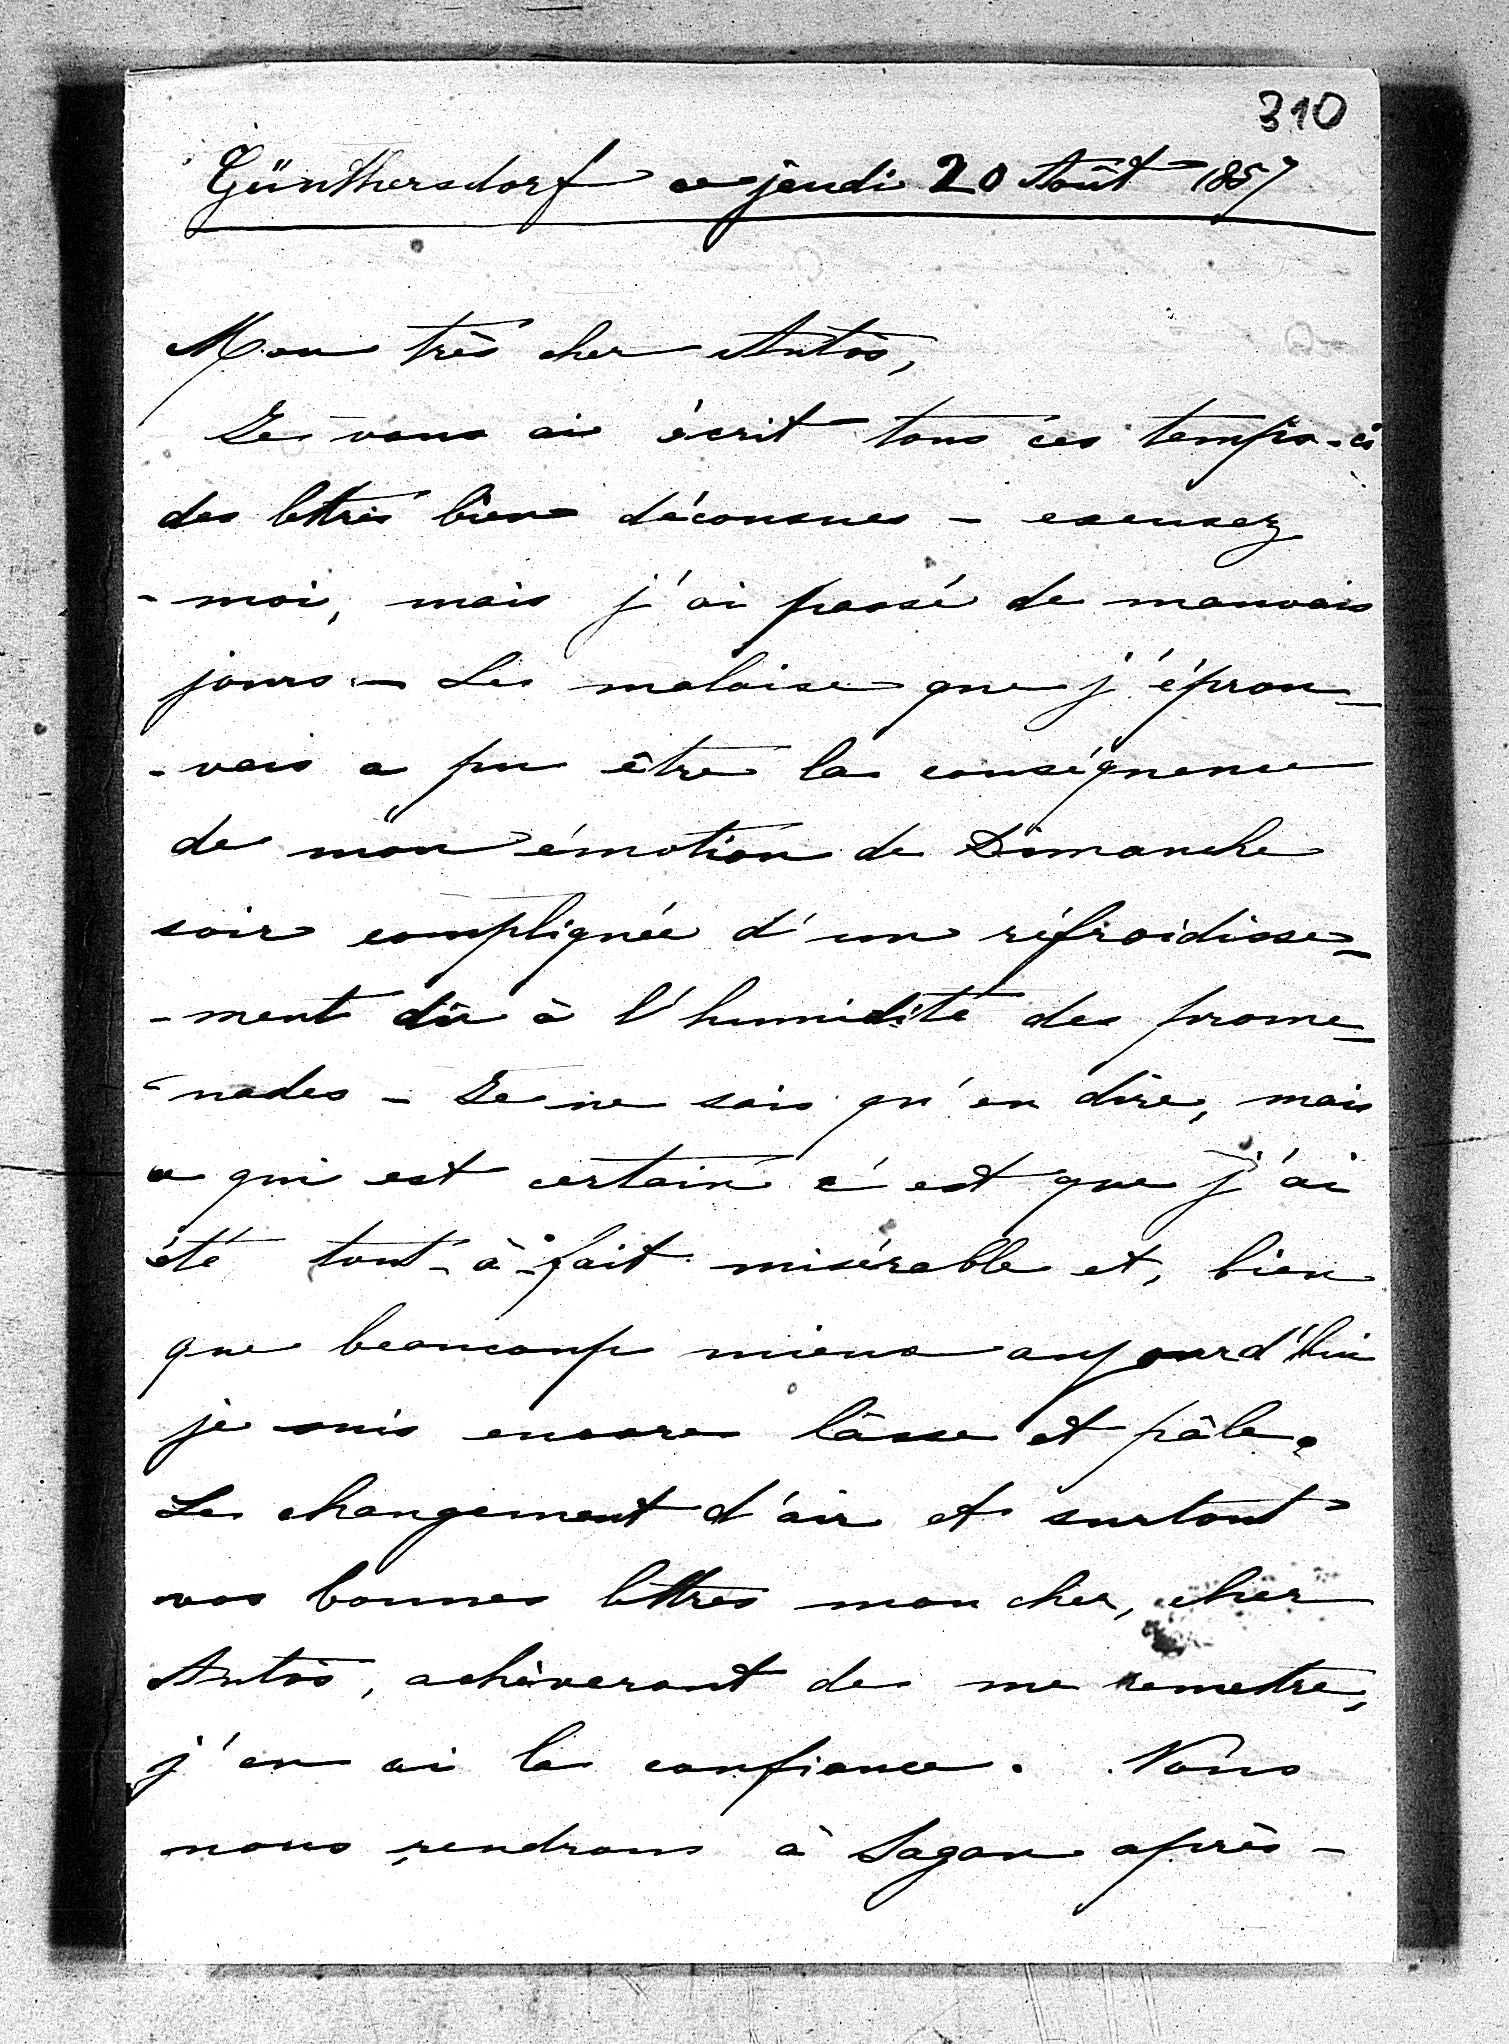 310
Günthersdorf ce jeudi 20 Août 1857
Mon très cher Antòs,
Je vous ai écrit tous ces temps-ci
des lettres bien décousues – excusez
-moi, mais j'ai passé de mauvais
jours – Le malaise que j'éprou-
-vais a pu être la conséquence
de mon émotion de Dimanche
soir compliquée d'un réfroidisse-
-ment dû à l'humidité des prome-
-nades – Je ne sais qu'en dire, mais
ce qui est certain c'est que j'ai
été tout-à-fait misérable et, bien
que beaucoup mieux aujourd'hui
je suis encore lâsse et pâle.
Le changement d'air et surtout
vos bonnes lettres mon cher, cher
Antòs, achèveront de me remettre,
j'en ai la confiance. Nous
nous rendrons à Sagan après-